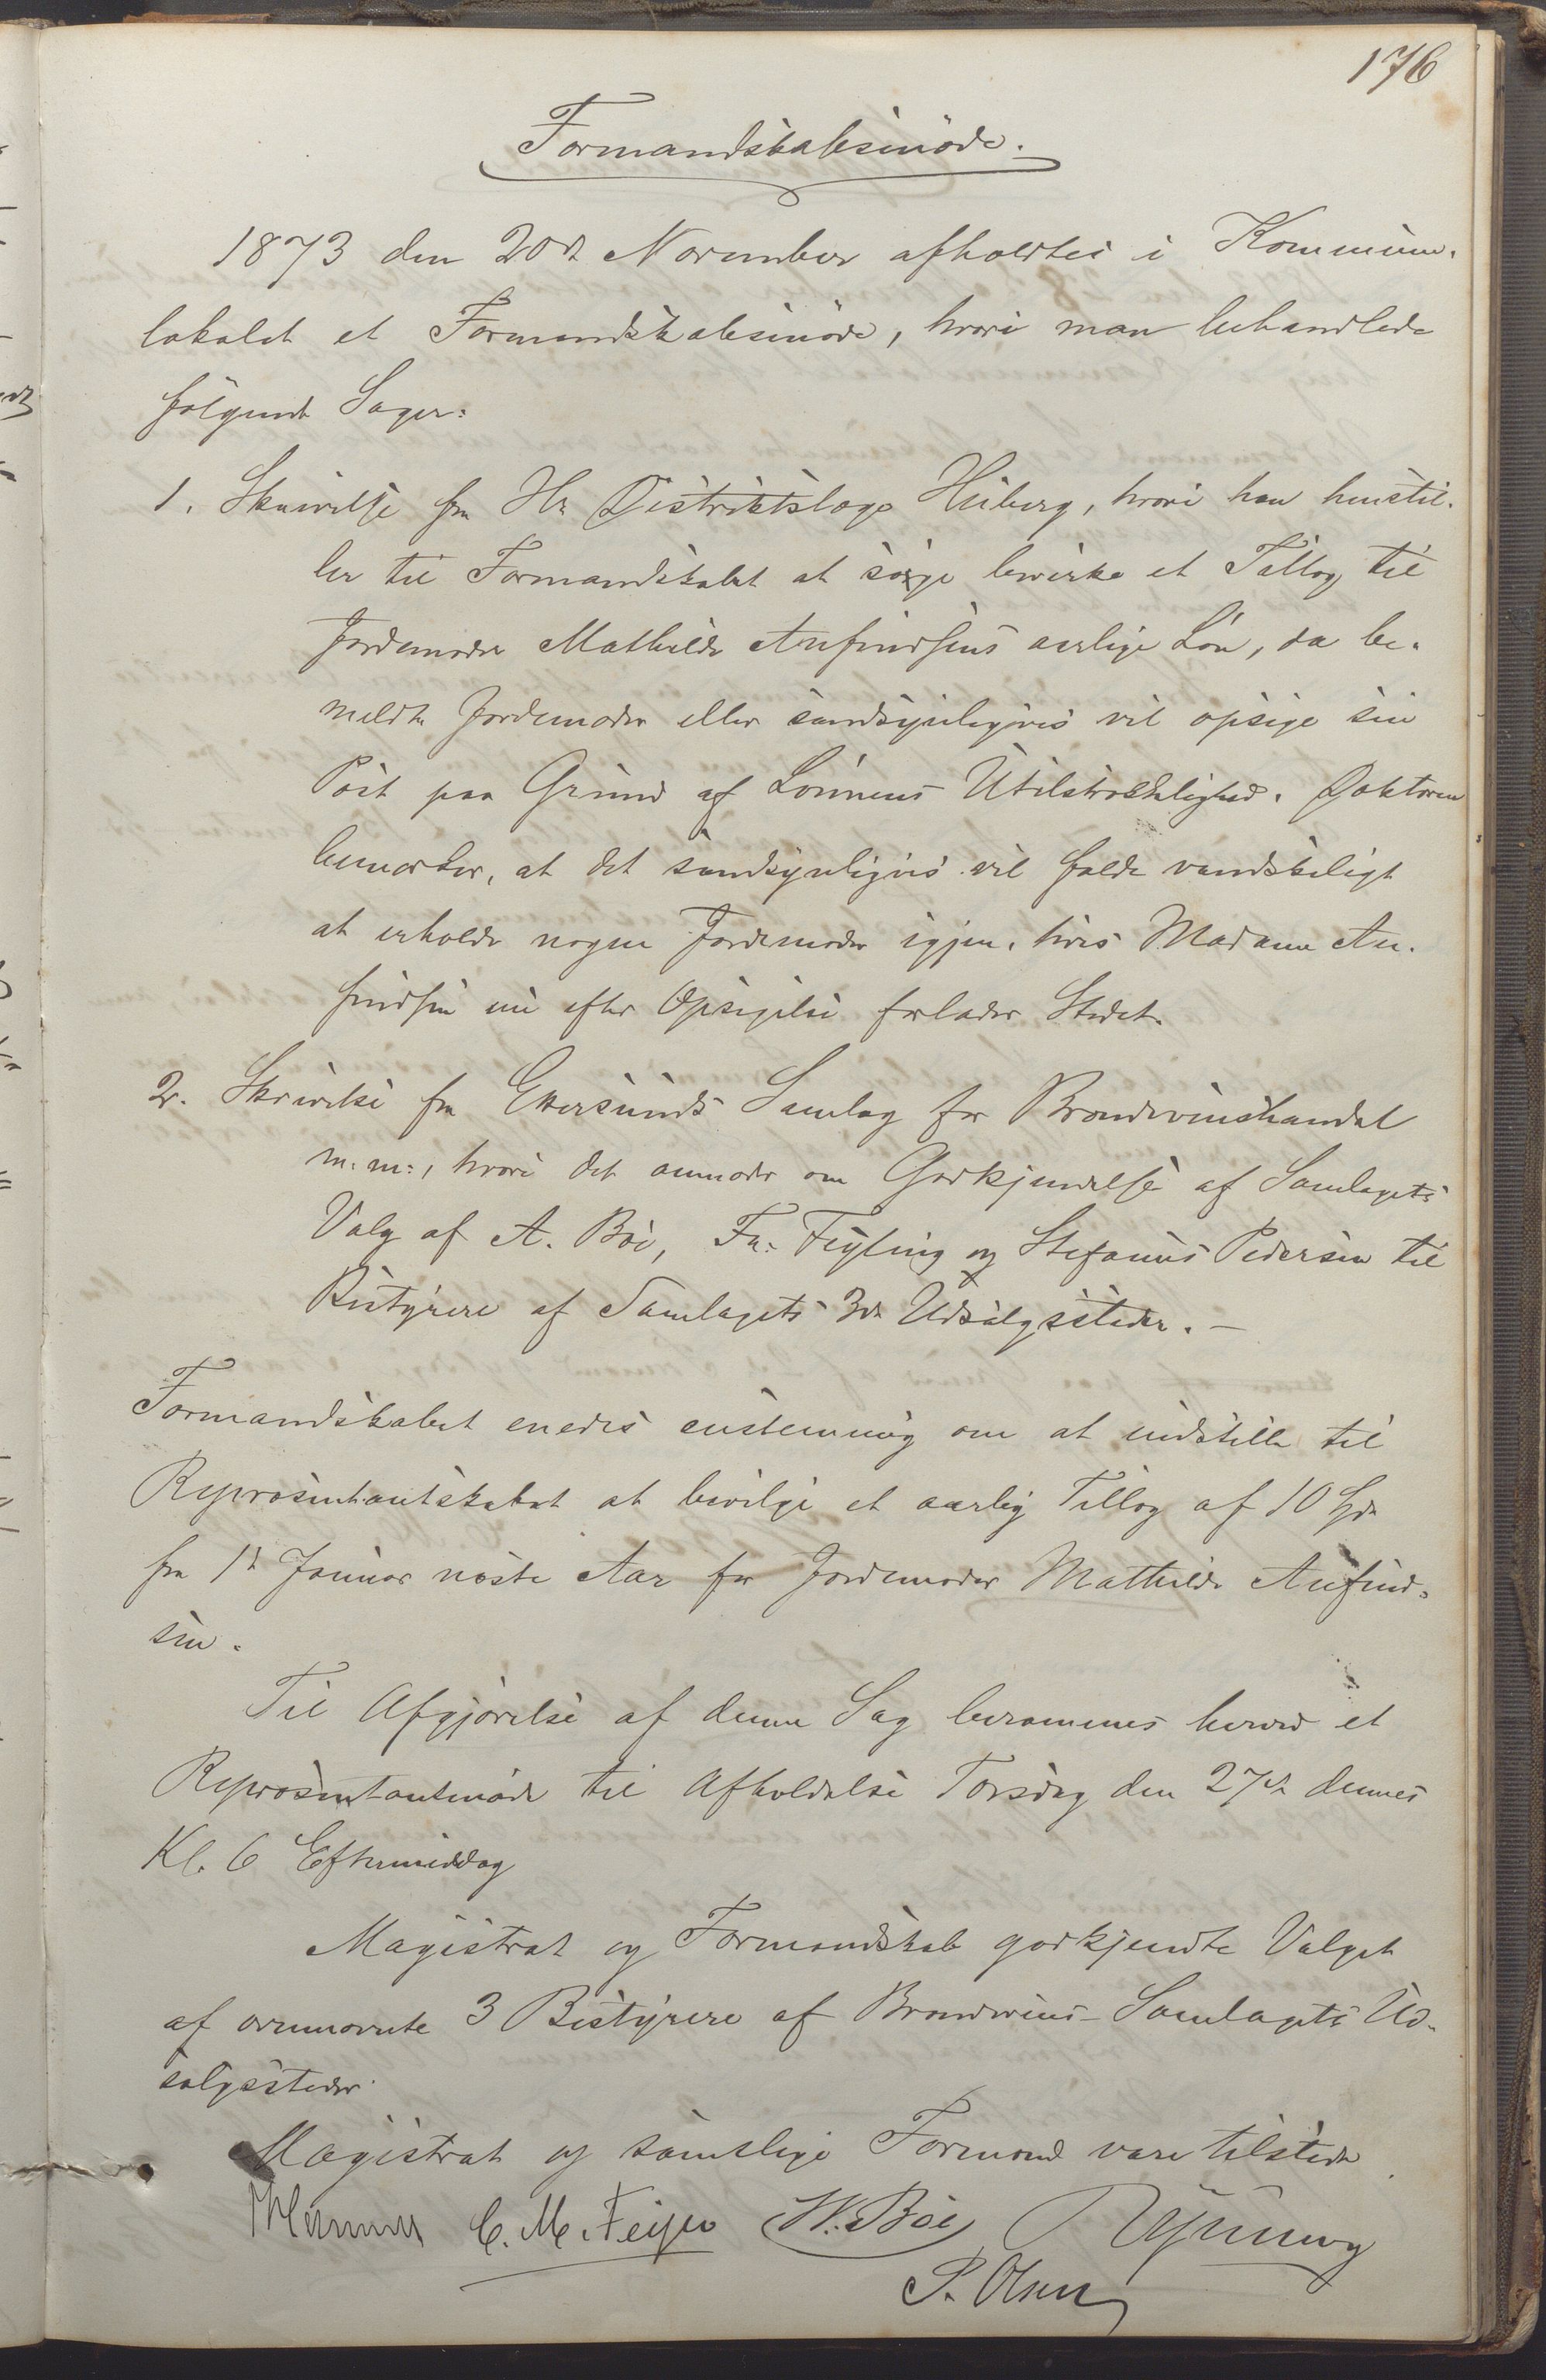 176
Formandskabsmöde.
1873 den 20de November afholdtes i Kommune-
lokalet et Formandskabsmöde, hvori man behandlede
følgende Sager:
1. Skrivelse fra Hr Distriktslæge Hiberg, hvori han henstil-
ler til Formandskabet at söge bevirke et Tillæg til
Jordemoder Mathilde Anfindsens aarlige Lön, da be-
meldte Jordemoder ellers sandsynligvis vil opsige sin
Post paa Grund af Lönnens Utilstrækkelighed. Doktoren
bemærker, at det sandsynligvis vil falde vandskeligt
at erholde nogen Jordemoder igjen, hvis Madame An-
findsen nu efter Opsigelse forlader Stedet.
2. Skrivelse fra Ekersunds Samlag for Brændevinshandel
m: m:, hvori det anmoder om Godkjendelse af Samlagets
Valg af A. Böe, Fr. Feyling og Stefanus Pedersen til
Bistyrere af Samlagets 3de Udsalgssteder. –
Formandskabet enedes enstemmig om at indstille til
Repræsentantskabet at bevilge et aarlig Tillæg af 10 Spd
fra 1ste Januar næste Aar for Jordemoder Mathilde Anfind-
sen.
Til Afgjörelse af denne Sag berammes herved et
Repræsentantmöde til Afholdelse Torsdag den 27de dennes
Kl. 6 Eftermiddag
Magistrat og Formandskab godkjendte Valget
af ovennævnte 3 Bestyrere af Brændevins-Samlagets Ud-
salgssteder.
Magistrat og samtlige Formænd vare tilstede.
C. M. Feyer W. Böe
P. Olsen